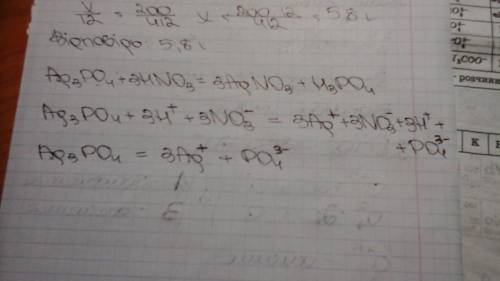 x/12 = 200/412 x = 200·12/412 = 5,8 г
Відповідь: 5,8 г
Ag₃PO₄ + 3HNO₃ = 3AgNO₃ + H₃PO₄
Ag₃PO₄ + 3H⁺ + 3NO₃⁻ = 3Ag⁺ + 3NO₃⁻ + 3H⁺ +
+ PO₄³⁻
Ag₃PO₄ = 3Ag⁺ + PO₄³⁻